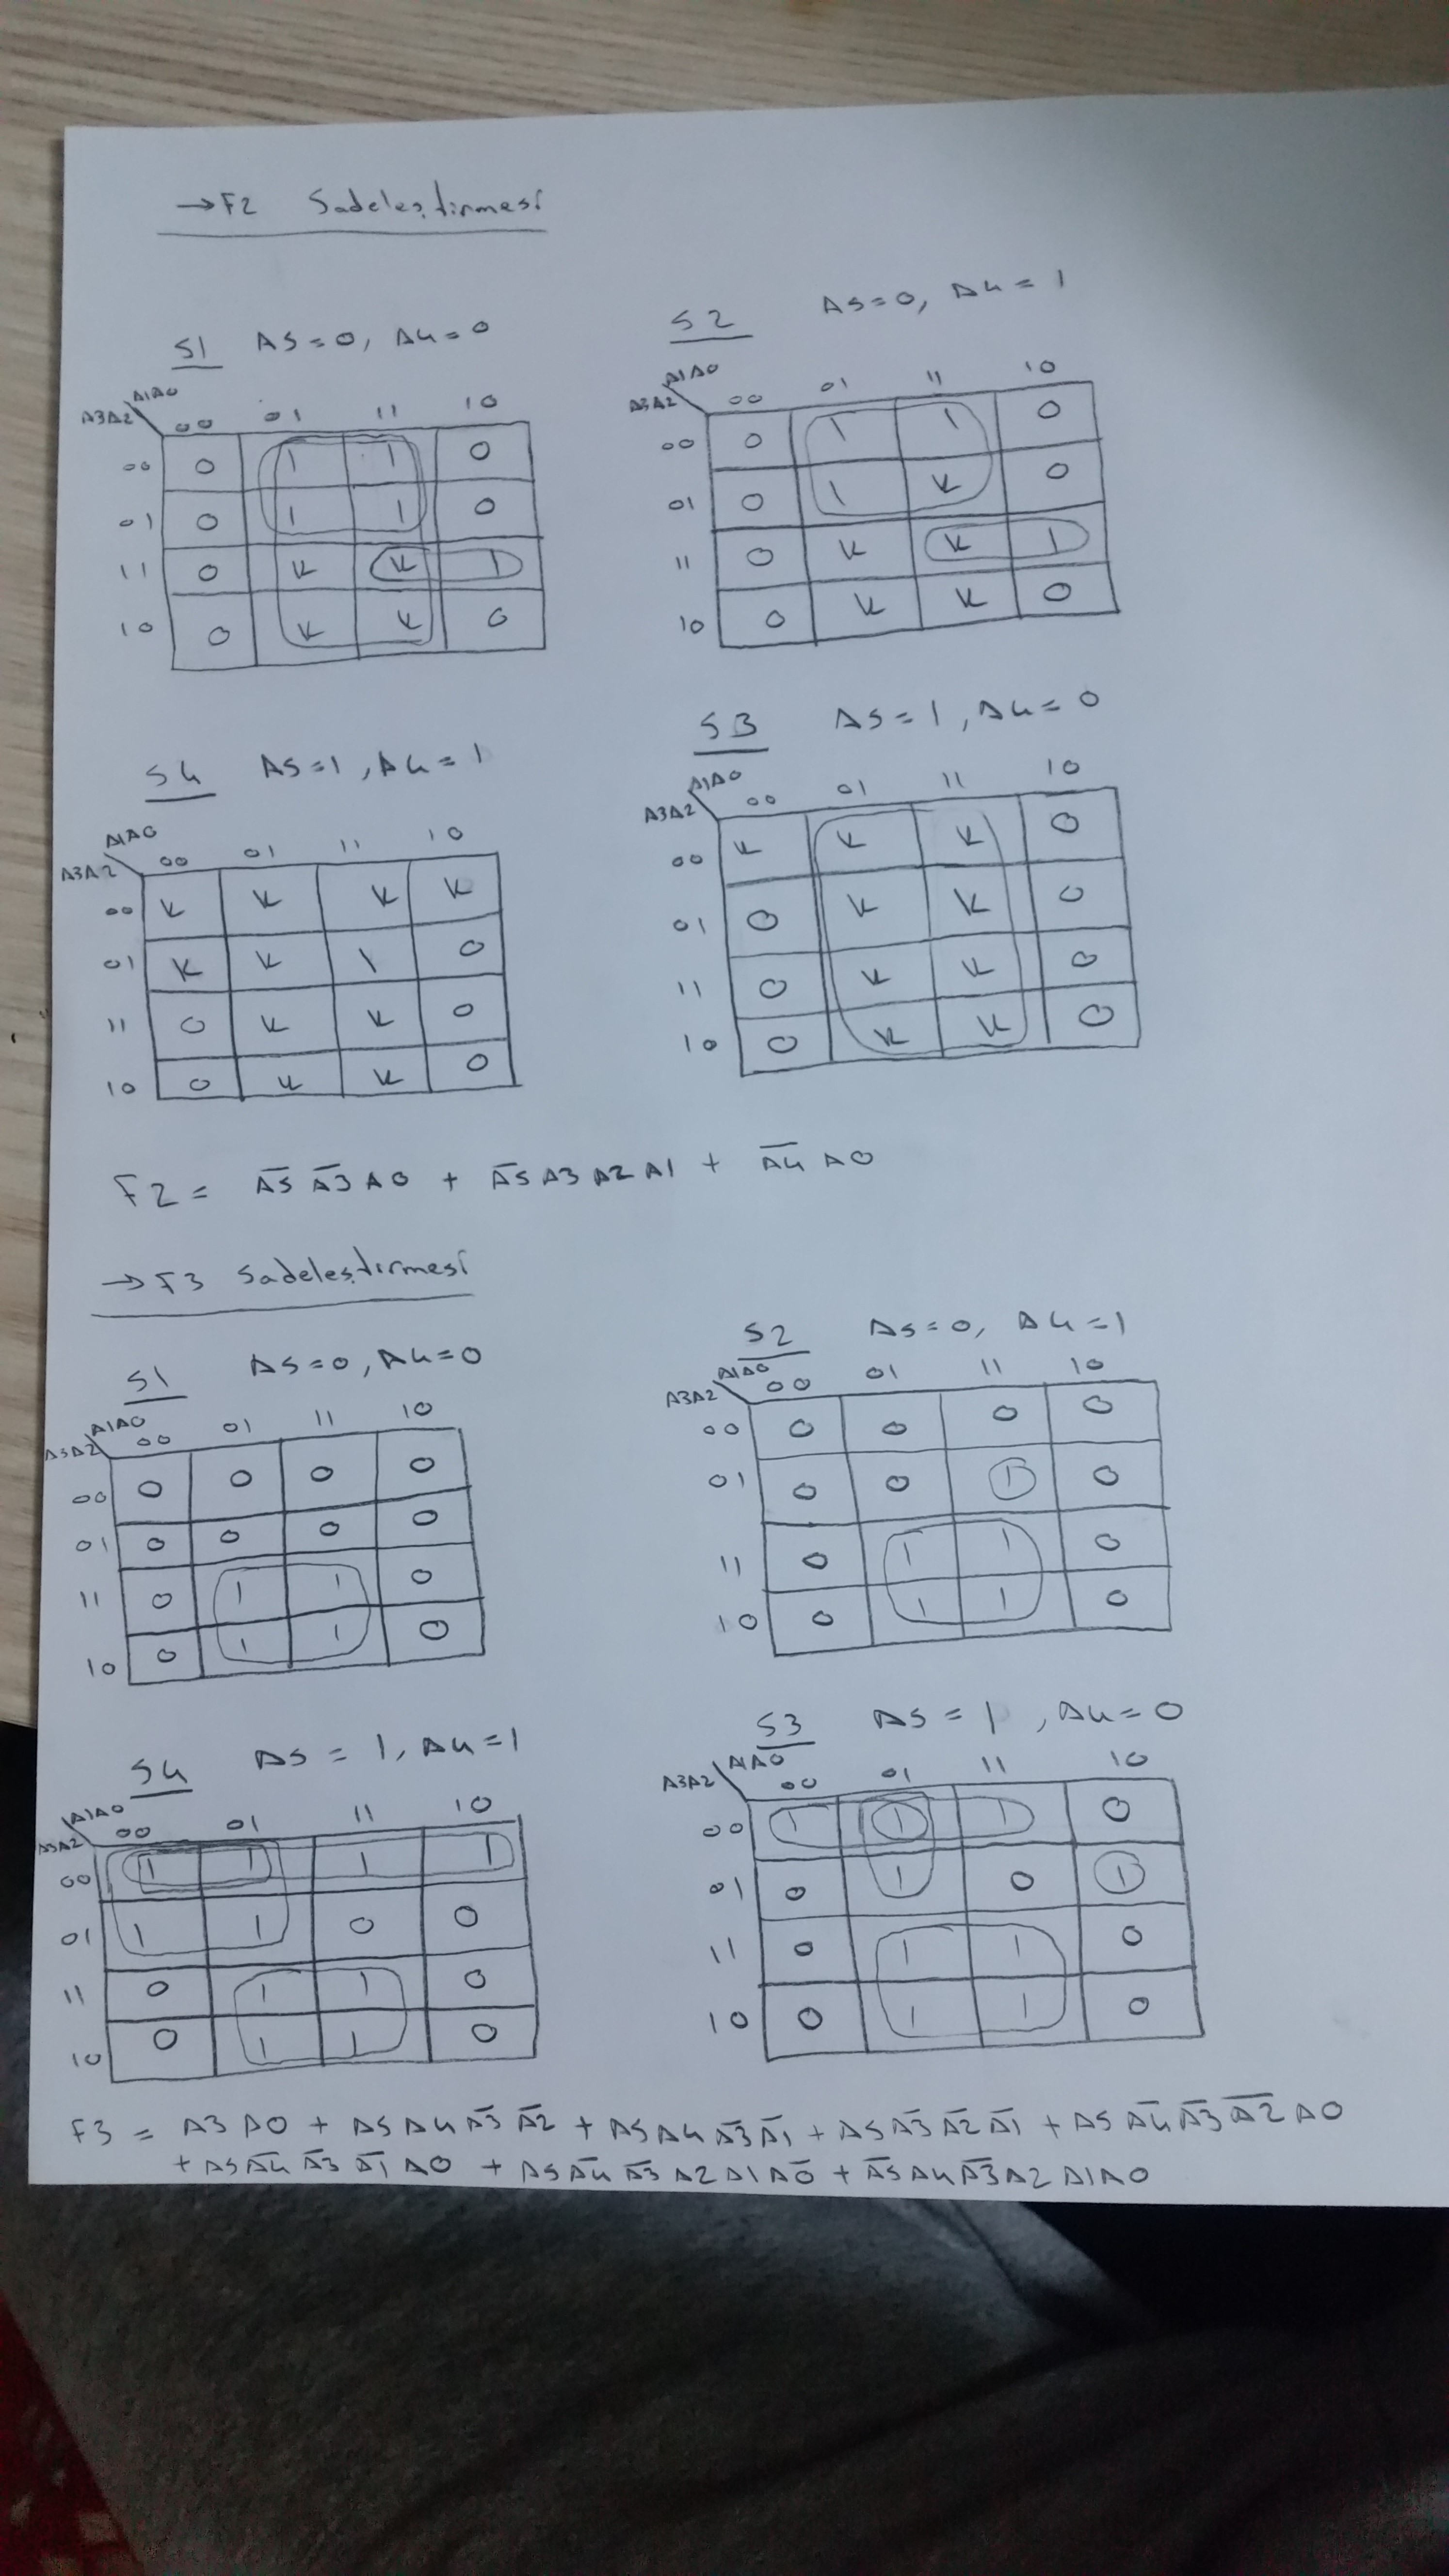 →F2 Sadeleştirmesi
S1 A5=0, A4=0
A1A0
A3A2 00 01 11 10
00 0 1 1 0
01 0 1 1 0
11 0 K K 1
10 0 K K 0
S2 A5=0, A4=1
A1A0
A3A2 00 01 11 10
00 0 1 1 0
01 0 1 K 0
11 0 K K 1
10 0 K K 0
S4 A5=1, A4=1
A1A0
A3A2 00 01 11 10
00 K K K K
01 K K 1 0
11 0 K K 0
10 0 K K 0
S3 A5=1, A4=0
A1A0
A3A2 00 01 11 10
00 K K K 0
01 0 K K 0
11 0 K K 0
10 0 K K 0
F2 = A̅5̅ A̅3̅ A0 + A̅5̅ A3 A2 A1 + A̅4̅ A0
→F3 Sadeleştirmesi
S1 A5=0, A4=0
A1A0
A3A2 00 01 11 10
00 0 0 0 0
01 0 0 0 0
11 0 1 1 0
10 0 1 1 0
S2 A5=0, A4=1
A1A0
A3A2 00 01 11 10
00 0 0 0 0
01 0 0 1 0
11 0 1 1 0
10 0 1 1 0
S4 A5=1, A4=1
A1A0
A3A2 00 01 11 10
00 1 1 1 1
01 1 1 0 0
11 0 1 1 0
10 0 1 1 0
S3 A5=1, A4=0
A1A0
A3A2 00 01 11 10
00 1 1 1 0
01 0 1 0 1
11 0 1 1 0
10 0 1 1 0
F3 = A3 A0 + A5 A4 A̅3̅ A̅2̅ + A5 A4 A̅3̅ A̅1̅ + A5 A̅3̅ A̅2̅ A̅1̅ + A5 A̅4̅ A̅3̅ A̅2̅ A0
+ A5 A̅4̅ A̅3̅ A̅1̅ A0 + A5 A̅4̅ A̅3̅ A2 A1 A̅0̅ + A̅5̅ A4 A̅3̅ A2 A1 A0